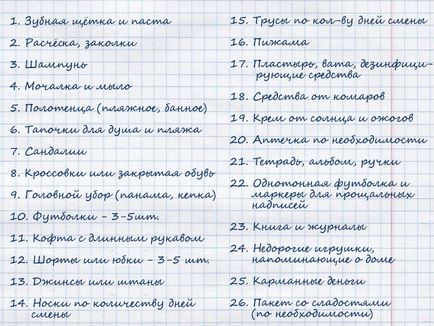 1. Зубная щётка и паста
2. Расчёска, заколки
3. Шампунь
4. Мочалка и мыло
5. Полотенца (пляжное, банное)
6. Тапочки для душа и пляжа
7. Сандалии
8. Кроссовки или закрытая обувь
9. Головной убор (панама, кепка)
10. Футболки - 3-5шт.
11. Кофта с длинным рукавом
12. Шорты или юбки - 3-5 шт.
13. Джинсы или штаны
14. Носки по количеству дней
смены
15. Трусы по кол-ву дней смены
16. Пижама
17. Пластыры, вата, дезинфици-
рующие средства
18. Средства от комаров
19. Крем от солнца и ожогов
20. Аптечка по необходимости
21. Тетрадь, альбом, ручки
22. Однотонная футболка и
маркеры для прощальных
надписей
23. Книга и журналы
24. Недорогие игрушки,
напоминающие о доме
25. Карманные деньги
26. Пакет со сладостями
(по необходимости)